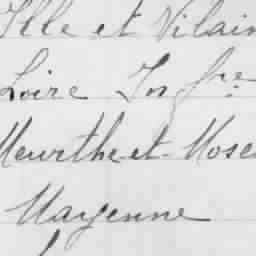 Ille et Vilain
Loire Inf.re
Meurthe et Mose
Mayenne